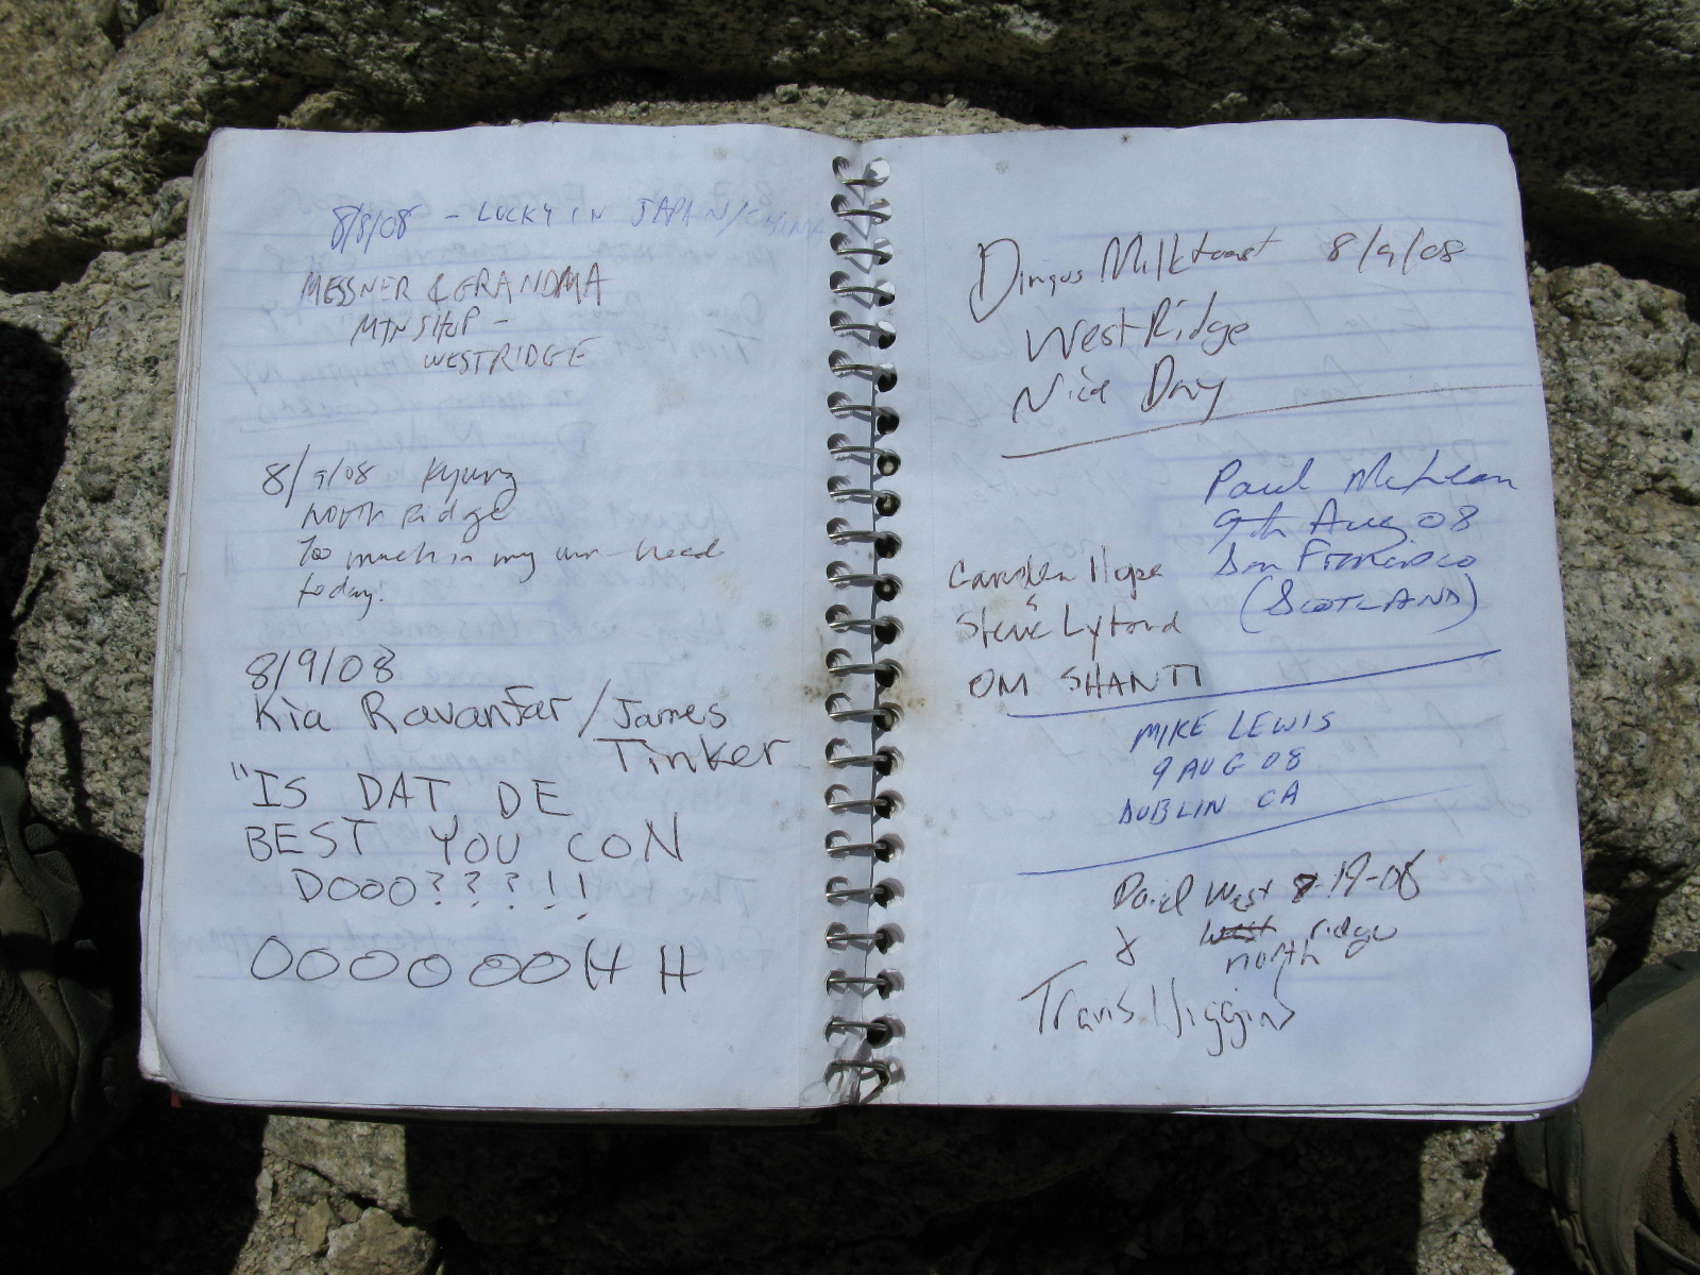 8/8/08 - LUCKY IN JAPAN/CHINA
MESSNER & GRANDMA
MTN SHOP -
WESTRIDGE
8/9/08 Kyung
North Ridge
Too much in my own head
today!
8/9/08
Kia Ravanfar / James
Tinker
"IS DAT DE
BEST YOU CON
DOOO???!!
OOOOOOOHH
Dingus Milktoast 8/9/08
West Ridge
Nice Day
Paul McLean
9th Aug 08
San Francisco
(SCOTLAND)
Camden Hope
Steve Lytord
OM SHANTI
MIKE LEWIS
9 AUG 08
DUBLIN CA
David West 8-19-08
& west ridge
north
Travis Higgins